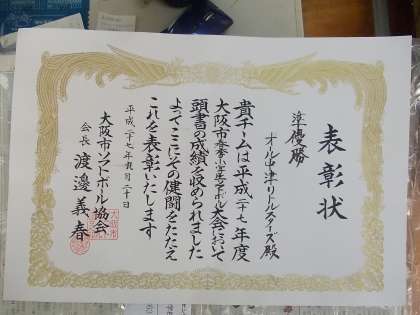 表彰状
準優勝
オール中津リトルスターズ殿
貴チームは平成二十七年度
大阪市春季小学生ソフトボール大会において
頭書の成績を収められました
よってここにその健闘をたたえ
これを表彰いたします
平成二十七年五月三十日
大阪市ソフトボール協会
会長 渡邊義春